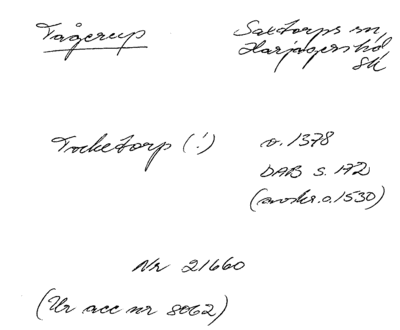 Tågerup
Saxtorps sn,
Harjagers hd,
Sk
Tocketorp (!)
o. 1378
DAB s. 172
(avskr. o. 1530)
Nr 21660
(Ur acc nr 8062)